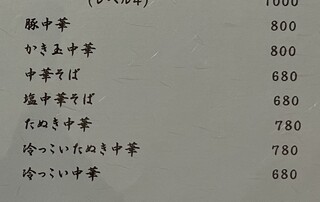 (レベル4) 1000
豚中華 800
かき玉中華 800
中華そば 680
塩中華そば 680
たぬき中華 780
冷っこいたぬき中華 780
冷っこい中華 680